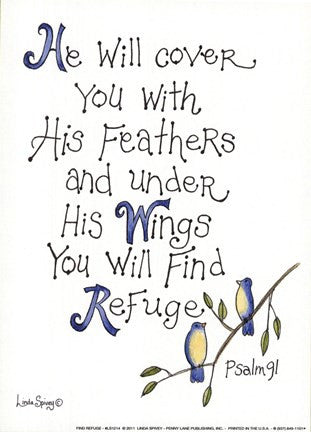 He Will cover
You With
His Feathers
and under
His Wings
You Will Find
Refuge
Psalm 91
Linda Spivey ©
FIND REFUGE - #LS1214 © 2011 LINDA SPIVEY - PENNY LANE PUBLISHING, INC. - PRINTED IN THE U.S.A. - (937) 849-1101